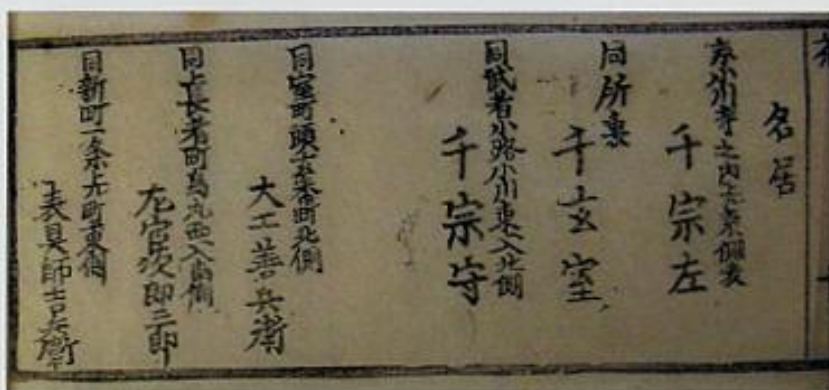 名居
京小川寺之内上ル東側表
千宗左
同所裏
千玄室
同武者小路小川東入北側
千宗守
同室町頭町北側
大工善兵衛
同上長者町烏丸西入南側
左官次郎三郎
同新町一条上ル町東側
表具師吉兵衛